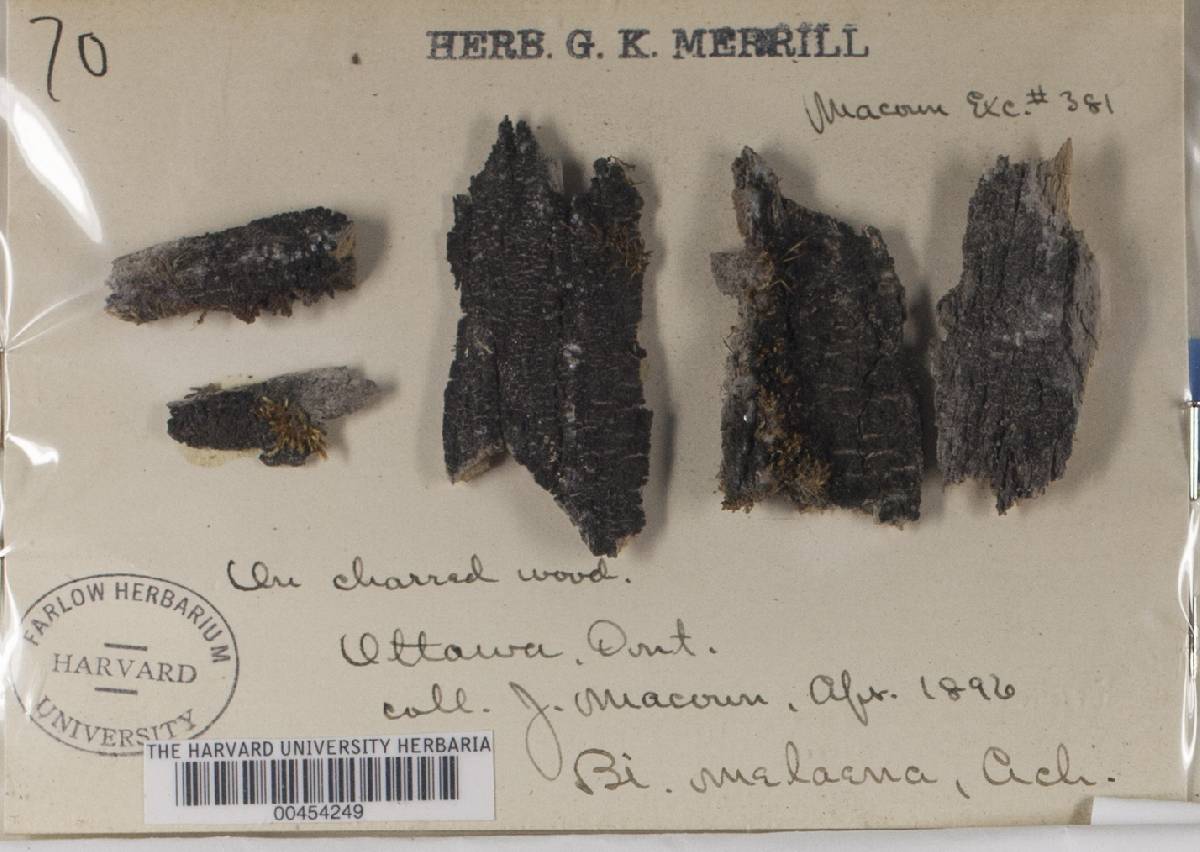 70
HERB. G. K. MERRILL
Macoun Exc. # 381
On charred wood.
Ottawa, Ont.
coll. J. Macoun, Apr. 1896
Bi. melaena, Ach.
FARLOW HERBARIUM
HARVARD
UNIVERSITY
THE HARVARD UNIVERSITY HERBARIA
00454249